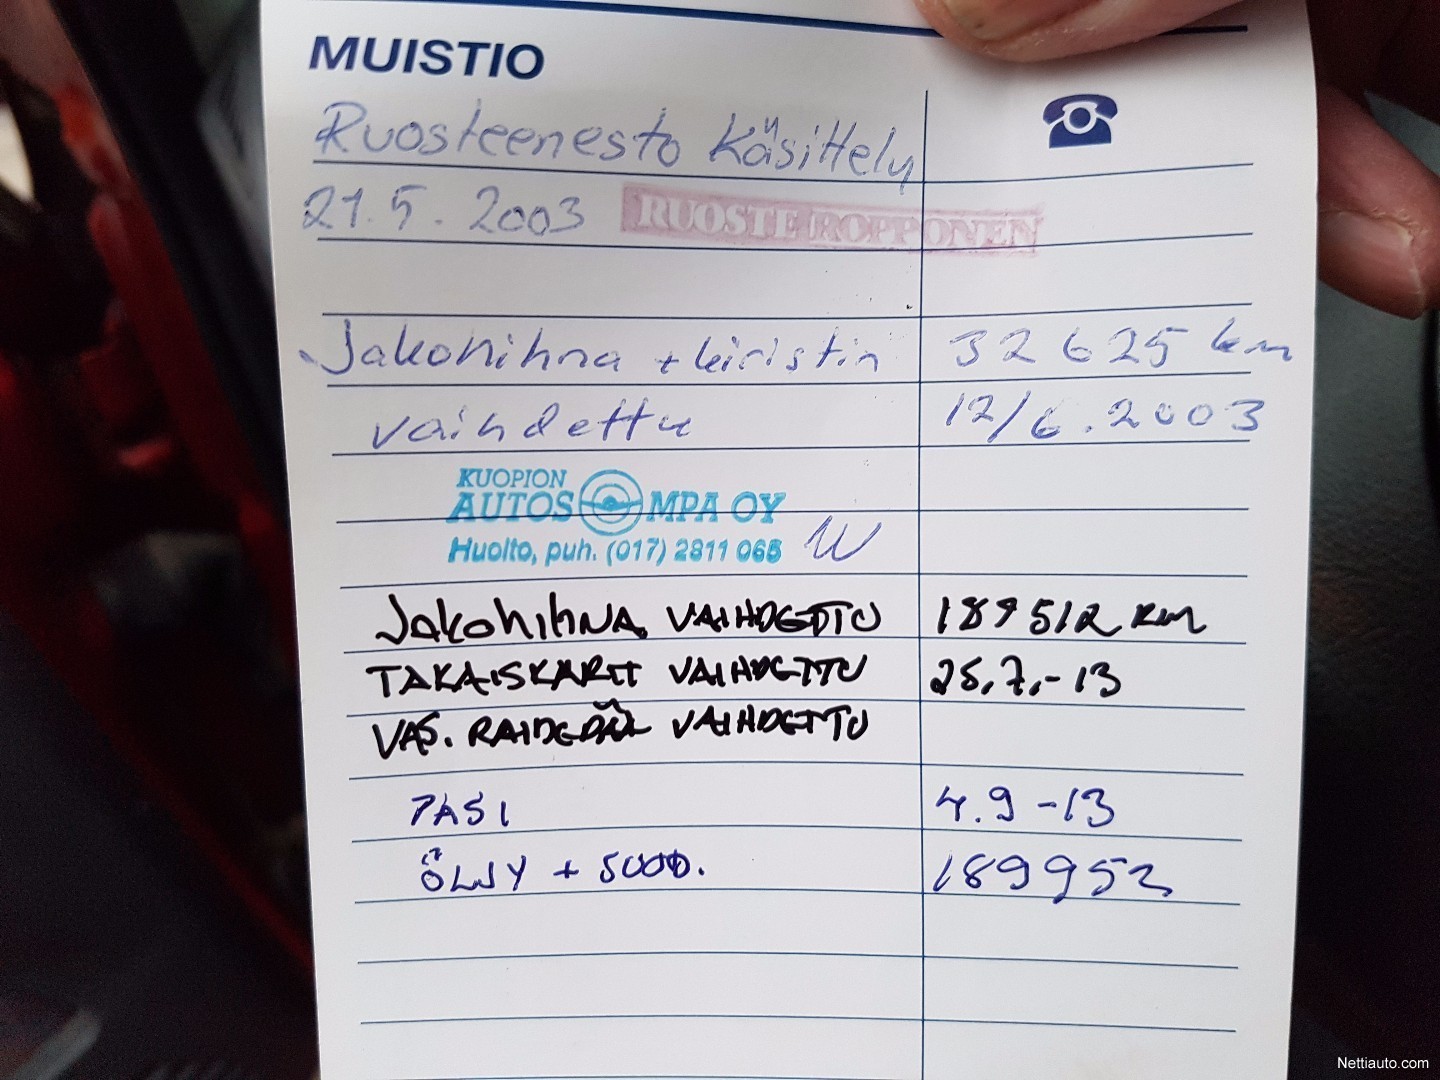 MUISTIO
Ruosteenesto Käsittely
21.5.2003 RUOSTE ROPPONEN
Jakohihna + kiristin 32625 km
vaihdettu 12/6.2003
KUOPION
AUTOSOMPA OY
Huolto, puh. (017) 2811 065
Jakohihna VAIHDETTU 189512 km
TAKAISKARIT VAIHDETTU 25.7.-13
VAS. RAIDEPÄÄ VAIHDETTU
PASI 4.9-13
ÖLJY + SUOD. 189952
Nettiauto.com